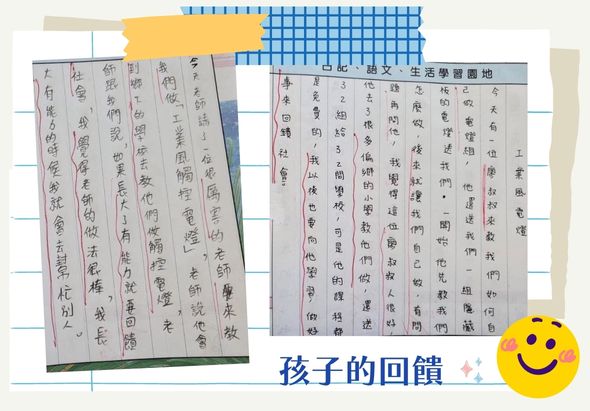 今天老師請了一位很厲害的老師來教
我們做「工業風觸控電燈」，老師說他會
到鄉下的學校去教他們做觸控電燈，老
師跟我們說，如果長大了有能力就要回饋
社會，我覺得老師的做法很棒，我長
大有能力的時候我就會去幫忙別人。
日記、語文、生活學習園地
工業風電燈
今天有一位廖叔叔來教我們如何自
己做電燈組，他還送我們一組隱藏
板的電燈送我們。一開始他先教我們
怎麼做，後來就讓我們自己做，有問
題再問他，我覺得這位廖叔叔人很好
他去了很多偏鄉的小學教他們做，還送
32組給32間學校，可是他的課程都
是免費的，我以後也要向他學習，做好
事來回饋社會。
孩子的回饋